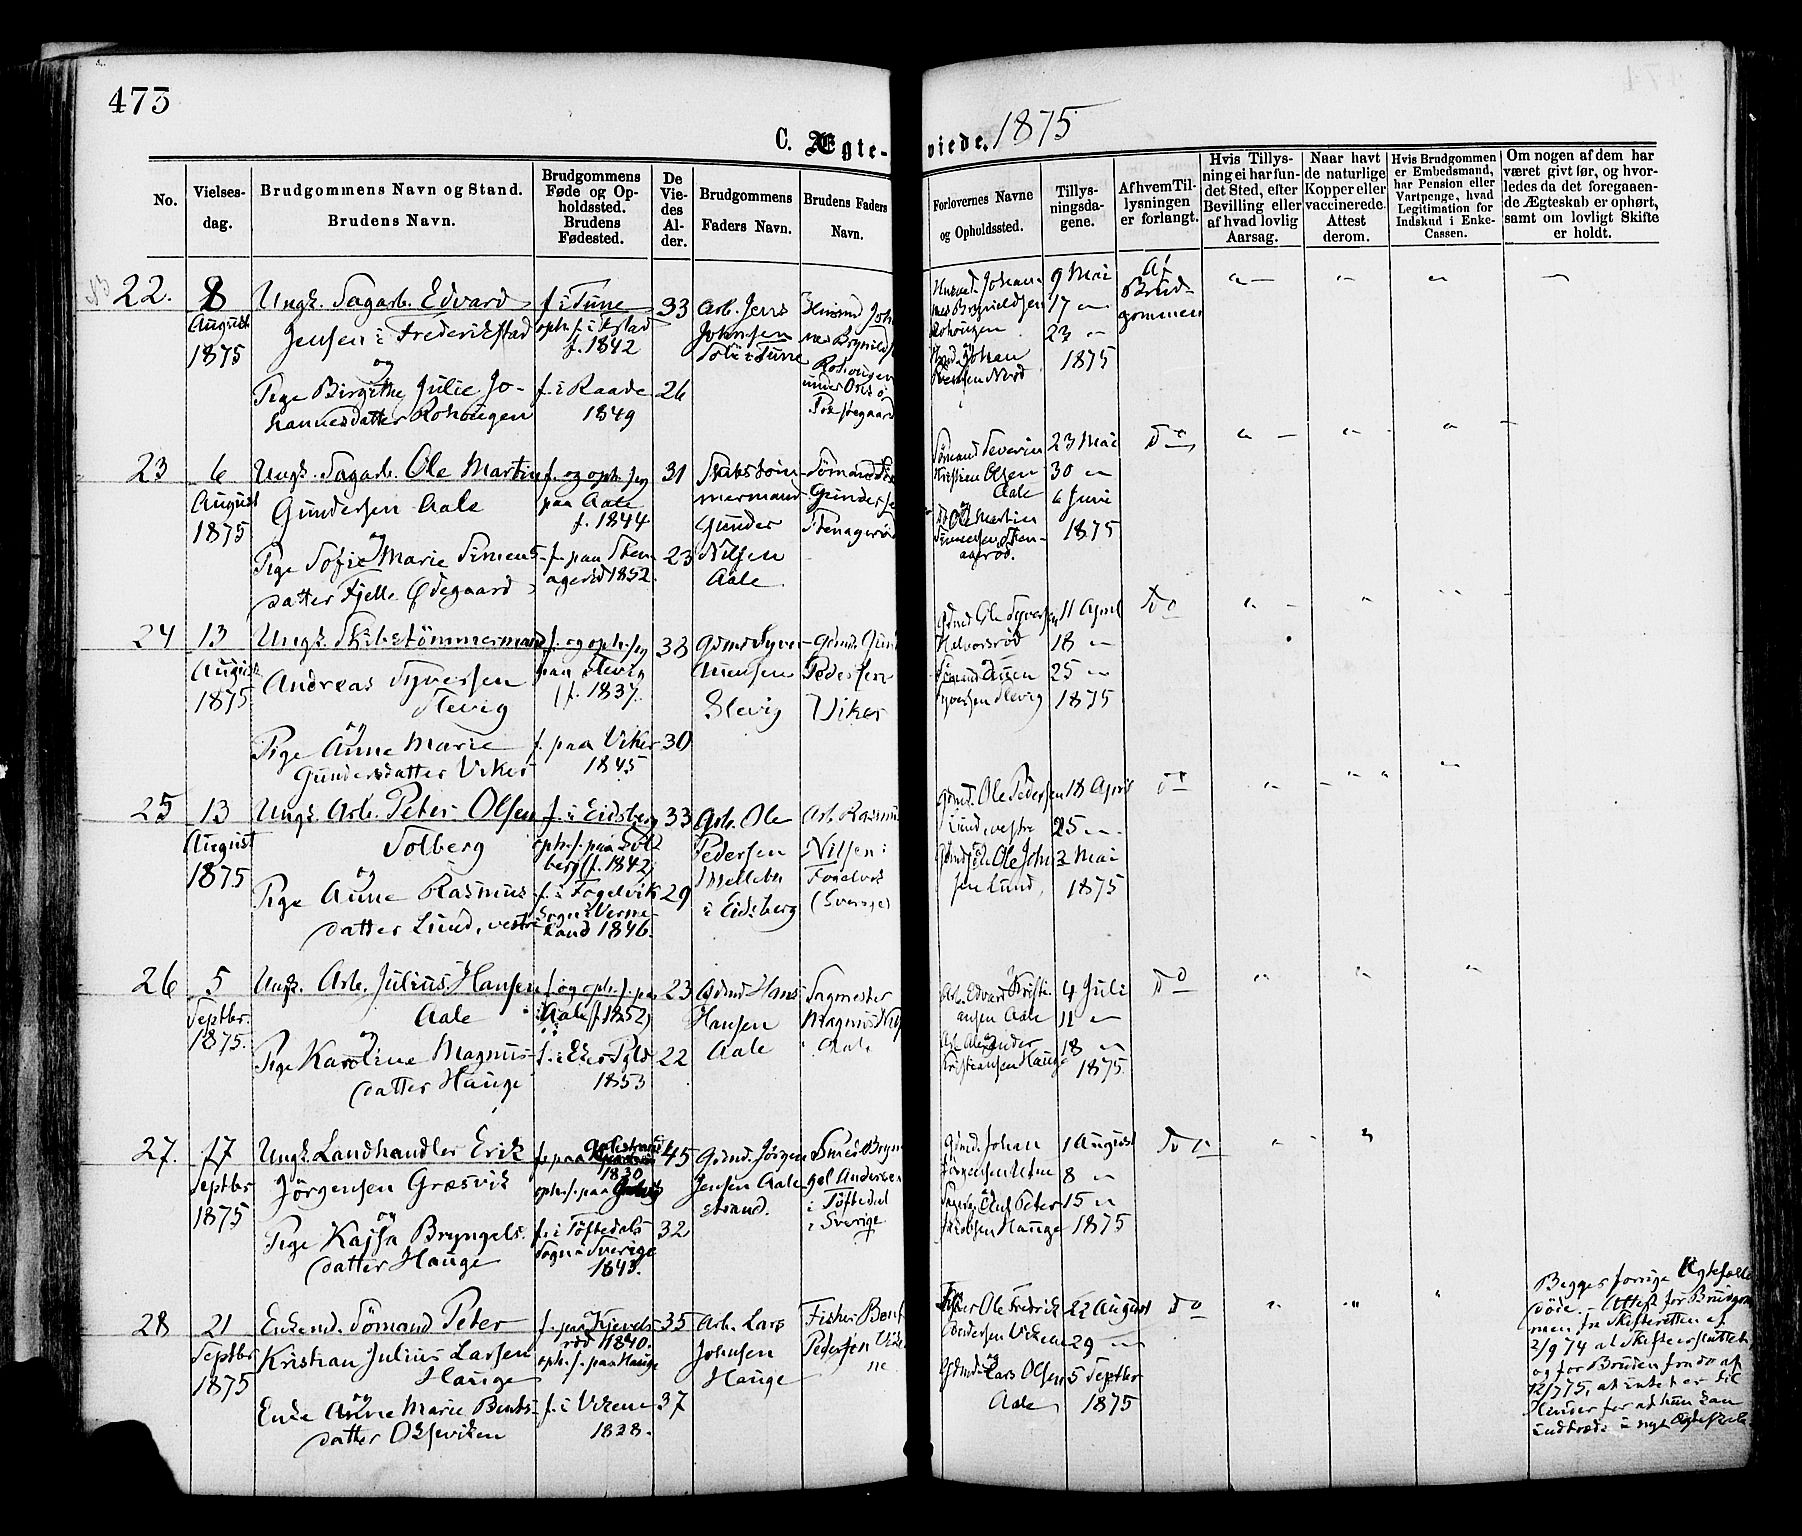 473
C. Ægte-
viede. 1875
No.
Vielses-
dag.
Brudgommens Navn og Stand.
Brudens Navn.
Brudgommens
Føde og Op-
holdssted.
Brudens
Fødested.
De
Vie-
des
Al-
der.
Brudgommens
Faders Navn.
Brudens Faders
Navn.
Forlovernes Navne
og Opholdssted.
Tillys-
ningsda-
gene.
Af hvem Til-
lysningen
er forlangt.
Hvis Tillys-
ning ei har fun-
det Sted, efter
Bevilling eller
af hvad lovlig
Aarsag.
Naar havt
de naturlige
Kopper eller
vaccinerede.
Attest
derom.
Hvis Brudgommen
er Embedsmand,
har Pension eller
Vartpenge, hvad
Legitimation for
Indskud i Enke-
Cassen.
Om nogen af dem har
været givt før, og hvor-
ledes da det foregaaen-
de Ægteskab er ophørt,
samt om lovligt Skifte
er holdt.
22.
8
August
1875
Ungk. Sagarb. Edvard
Jensen i Frederikstad
og
Pige Birgithe Julie Jo-
hannesdatter Rohougen
f. i Tune
f. 1842
f. i Raade
1849
33
26
Arb. Jens
Johnsen
i Tune
Rohougen
under Ons ø
Præstegaard
Johan-
nes Brynildsen
Rohougen
og
Johan
9 Mai
17 "
23 "
1875
Af
Brud-
gommen
23
6
August
1875
Ungk. Sagarb. Ole Martin
Gundersen Aale
og
Pige Sofie Marie Simens-
datter Fjelle Ødegaard
f. og oph. sig
paa Aale
f. 1844
f. paa Sten-
agerød 1852.
31
23
Skibstøm-
mermand
Gunder
Nilsen
Aale
Sømand
Gunderse
Stenagerød
Sømand Severin
Kristian Olsen
Aale
og
Ole Martin
Simensen Sten-
agerød.
23 Mai
30 "
6 Juni
1875
Do
24
13
August
1875
Ungk. Skibstømmermand
Andreas Syversen
Slevig
og
Pige Anne Marie
Gundersdatter Viker
f. og oph. sig
paa Slevig
f. 1837.
f. paa Viker
1845
38
30
Gdmd Syver
Slevig
Gdmd. Gun
Pedersen
Viker
Gdmd Ole Syversen
Halvorsrød
Syversen Slevig
11 April
18 "
25 "
1875
Do
25
13
August
1875
Ungk. Arb. Peter Olsen
Solberg
og
Pige Anne Rasmus-
datter Lund, vestre
f. i Eidsberg
oph. s. paa Sol-
berg (f. 1842)
f. i Fogelvik
Sogn i Verme-
land 1846.
33
29
Arb. Ole
Pedersen
i Eidsberg
Arb. Rasmus
Nilsen i
Fogelvik
(Sverige)
Gdmd. Ole Pedersen
Lund, vestre
Ole John-
sen Lund,
18 April
25 "
2 Mai
1875
Do
26
5
Septbr.
1875.
Ungk. Arb. Julius Hansen
Aale
og
Pige Karoline Magnus-
datter Hauge
f. og oph. s. paa
Aale (f. 1852)
f. i Eker Pgld
1853
23
22
Gdmd Hans
Hansen
Aale
Sagmester
Magnus
Aale
Arb. Edvard Kristi-
ansen Aale
og
Kristiansen Hauge
4 Juli
11 "
18 "
1875
Do
27.
17
Septbr
1875
Ungk. Landhandler Erik
Jörgensen Græsvik
og
Pige Kajsa Bryngels-
datter Hauge
f. paa Aalestrand
1830
oph. s. paa
f. i Töftedals
Sogn i Sverige
1843.
45
32
Gdmd. Jörgen
Jensen Aale-
strand.
Smed Bryn
gel Andersen
i Töftedal
i Sverige
Gdmd. Johan
og
Peter
Jacobsen Hauge
1 August
8 "
15 "
1875
Do
28
21
Septbr
1875
Enkemd. Sömand Peter
Kristian Julius Larsen
Hauge
og
Enke Anne Marie Bents-
datter Oksviken
f. paa Kjevels-
rød 1840.
oph. s. paa Hauge
f. i Vikene
1838.
35
37
Arb. Lars
Johnsen
Hauge
Fisker Bent
Pedersen Vike-
ne
Fisker Ole Fredrik
Vikene
og
Gdmd Lars Olsen
Aale
22 August
29 "
5 Septbr
1875
Do
Begges forrige Ægtefæller
døde. Attest for Brudgom-
men fra Skifteretten af
2/9 74 at Skifte er sluttet
og for Bruden fra do af
12/7 75, at intet er til
Hinder for at hun kan
indtræde i nyt Ægteskab.